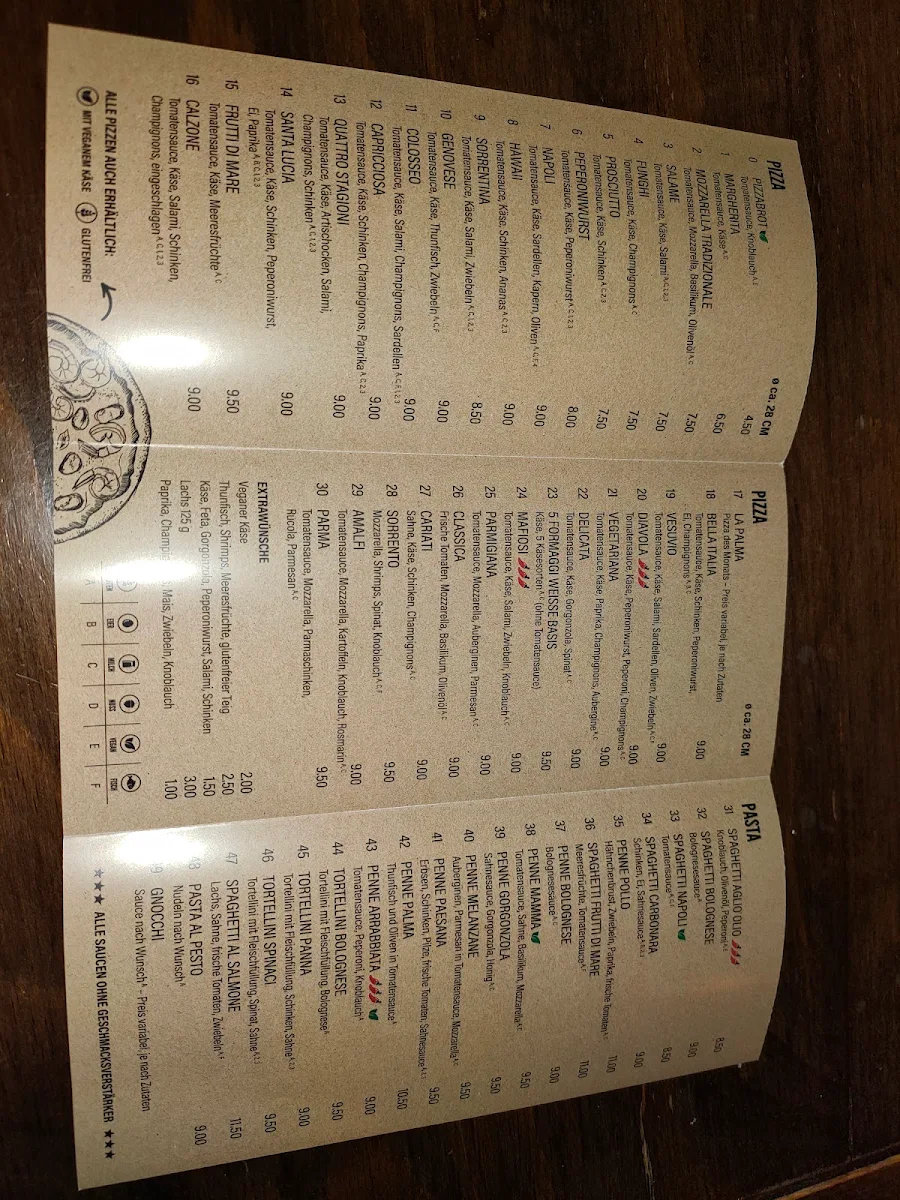 PIZZA ø ca. 28 CM
0 PIZZABROT 4.50
Tomatensauce, Knoblauch A,C
1 MARGHERITA 6.50
Tomatensauce, Käse A,C
2 MOZZARELLA TRADIZIONALE 7.50
Tomatensauce, Mozzarella, Basilikum, Olivenöl A,C
3 SALAME 7.50
Tomatensauce, Käse, Salami A,C,1,2,3
4 FUNGHI 7.50
Tomatensauce, Käse, Champignons A,C
5 PROSCIUTTO 7.50
Tomatensauce, Käse, Schinken A,C,2,3
6 PEPERONIWURST 8.00
Tomatensauce, Käse, Peperoniwurst A,C,1,2,3
7 NAPOLI 9.00
Tomatensauce, Käse, Sardellen, Kapern, Oliven A,C,F,4
8 HAWAII 9.00
Tomatensauce, Käse, Schinken, Ananas A,C,2,3
9 SORRENTINA 8.50
Tomatensauce, Käse, Salami, Zwiebeln A,C,1,2,3
10 GENOVESE 9.00
Tomatensauce, Käse, Thunfisch, Zwiebeln A,C,F
11 COLOSSEO 9.00
Tomatensauce, Käse, Salami, Champignons, Sardellen A,C,F,1,2,3
12 CAPRICCIOSA 9.00
Tomatensauce, Käse, Schinken, Champignons, Paprika A,C,2,3
13 QUATTRO STAGIONI 9.00
Tomatensauce, Käse, Artischocken, Salami,
Champignons, Schinken A,C,1,2,3
14 SANTA LUCIA 9.00
Tomatensauce, Käse, Schinken, Peperoniwurst,
Ei, Paprika A,B,C,1,2,3
15 FRUTTI DI MARE 9.50
Tomatensauce, Käse, Meeresfrüchte A,C
16 CALZONE 9.00
Tomatensauce, Käse, Salami, Schinken,
Champignons, eingeschlagen A,C,1,2,3
ALLE PIZZEN AUCH ERHÄLTLICH:
MIT VEGANEM KÄSE GLUTENFREI
PIZZA ø ca. 28 CM
17 LA PALMA
Pizza des Monats – Preis variabel, je nach Zutaten
18 BELLA ITALIA 9.00
Tomatensauce, Käse, Schinken, Peperoniwurst,
Ei, Champignons A,B,C
19 VESUVIO 9.00
Tomatensauce, Käse, Salami, Sardellen, Oliven, Zwiebeln A,C,F
20 DIAVOLA 9.00
Tomatensauce, Käse, Peperoniwurst, Peperoni, Champignons A,C
21 VEGETARIANA 9.00
Tomatensauce, Käse, Paprika, Champignons, Aubergine A,C
22 DELICATA 9.00
Tomatensauce, Käse, Gorgonzola, Spinat A,C
23 5 FORMAGGI WEISSE BASIS 9.50
Käse, 5 Käsesorten A,C (ohne Tomatensauce)
24 MAFIOSI 9.00
Tomatensauce, Käse, Salami, Zwiebeln, Knoblauch A,C
25 PARMIGIANA 9.00
Tomatensauce, Mozzarella, Auberginen, Parmesan A,C
26 CLASSICA 9.00
Frische Tomaten, Mozzarella, Basilikum, Olivenöl A,C
27 CARIATI 9.00
Sahne, Käse, Schinken, Champignons A,C
28 SORRENTO 9.50
Mozzarella, Shrimps, Spinat, Knoblauch A,C,F
29 AMALFI 9.00
Tomatensauce, Mozzarella, Kartoffeln, Knoblauch, Rosmarin A,C
30 PARMA 9.50
Tomatensauce, Mozzarella, Parmaschinken,
Rucola, Parmesan A,C
EXTRAWÜNSCHE
Veganer Käse 2.00
Thunfisch, Shrimps, Meeresfrüchte, glutenfreier Teig 2.50
Käse, Feta, Gorgonzola, Peperoniwurst, Salami, Schinken 1.50
Lachs 125 g 3.00
Paprika, Mais, Zwiebeln, Knoblauch 1.00
EIER MILCH NUSS VEGAN FISCH
A B C D E F
PASTA
31 SPAGHETTI AGLIO OLIO 8.50
Knoblauch, Olivenöl, Peperoni A
32 SPAGHETTI BOLOGNESE 9.00
Bolognesesauce
33 SPAGHETTI NAPOLI 8.50
Tomatensauce
34 SPAGHETTI CARBONARA 9.00
Schinken, Ei, Sahnesauce
35 PENNE POLLO 11.00
Hähnchenbrust, Zwiebeln, Paprika, frische Tomaten
36 SPAGHETTI FRUTTI DI MARE 11.00
Meeresfrüchte, Tomatensauce
37 PENNE BOLOGNESE 9.00
Bolognesesauce
38 PENNE MAMMA 9.50
Tomatensauce, Sahne, Basilikum, Mozzarella
39 PENNE GORGONZOLA 9.50
Sahnesauce, Gorgonzola, Honig
40 PENNE MELANZANE 9.50
Auberginen, Parmesan in Tomatensauce, Mozzarella
41 PENNE PAESANA 9.50
Erbsen, Schinken, Pilze, frische Tomaten, Sahnesauce
42 PENNE PALMA 10.50
Thunfisch und Oliven in Tomatensauce
43 PENNE ARRABBIATA 9.00
Tomatensauce, Peperoni, Knoblauch
44 TORTELLINI BOLOGNESE 9.50
Tortellini mit Fleischfüllung, Bolognese
45 TORTELLINI PANNA 9.00
Tortellini mit Fleischfüllung, Schinken, Sahne
46 TORTELLINI SPINACI 9.50
Tortellini mit Fleischfüllung, Spinat, Sahne
47 SPAGHETTI AL SALMONE 11.50
Lachs, Sahne, frische Tomaten, Zwiebeln
PASTA AL PESTO 9.00
Nudeln nach Wunsch
GNOCCHI
Sauce nach Wunsch – Preis variabel, je nach Zutaten
★★★ ALLE SAUCEN OHNE GESCHMACKSVERSTÄRKER ★★★